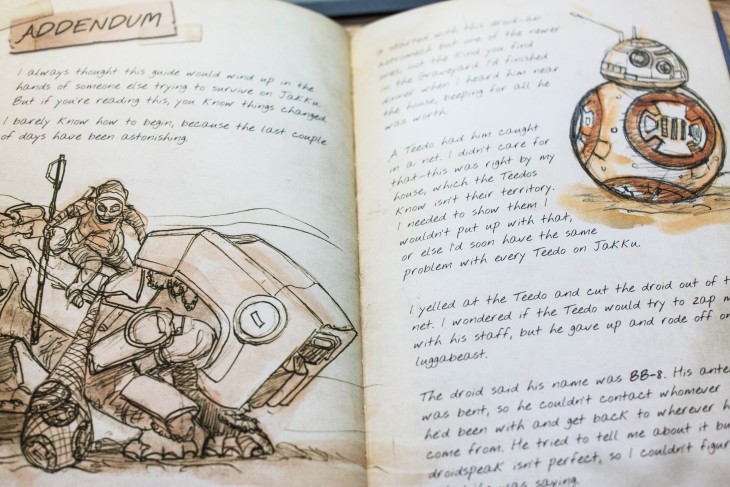 ADDENDUM
I always thought this guide would wind up in the
hands of someone else trying to survive on Jakku.
But if you're reading this, you know things changed.
I barely know how to begin, because the last couple
of days have been astonishing.
It started with this droid-an
astromech but one of the newer
ones, not the kind you find
in the Graveyard. I'd finished
dinner when I heard him near
the house, beeping for all he
was worth.
A Teedo had him caught
in a net. I didn't care for
that-this was right by my
house, which the Teedos
know isn't their territory.
I needed to show them I
wouldn't put up with that,
or else I'd soon have the same
problem with every Teedo on Jakku.
I yelled at the Teedo and cut the droid out of
net. I wondered if the Teedo would try to zap
with his staff, but he gave up and rode off
luggabeast.
The droid said his name was BB-8. His
was bent, so he couldn't contact whomever
he'd been with and get back to wherever
come from. He tried to tell me about it
droidspeak isn't perfect, so I couldn't
was saying